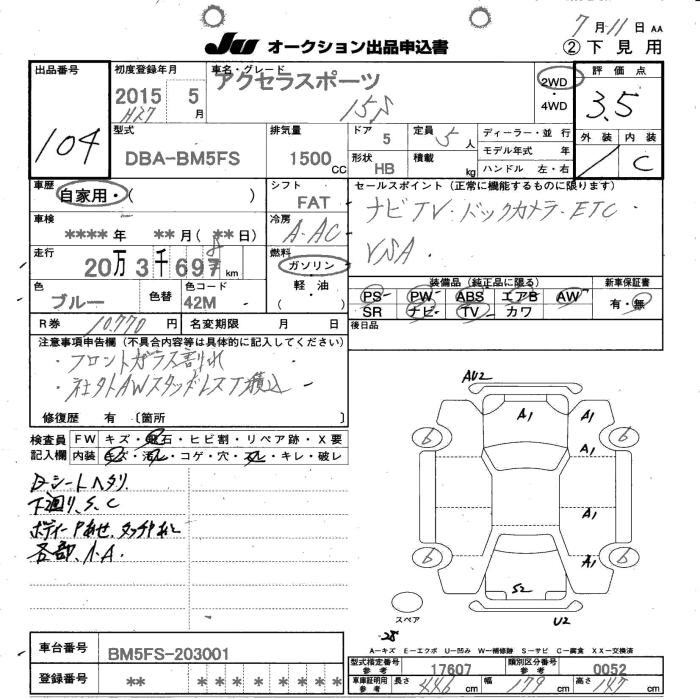 7月11日 AA
JU オークション出品申込書
②下見用
出品番号
104
初度登録年月
2015 5月
H27
車名・グレード
アクセラスポーツ
15S
2WD
・
4WD
評価点
3.5
外装 内装
C
型式
DBA-BM5FS
排気量
1500 CC
ドア
5
形状
HB
定員
5人
積載
kg
ディーラー・並行
モデル年式 年
ハンドル 左・右
車歴
自家用・( )
シフト
FAT
セールスポイント(正常に機能するものに限ります)
ナビTV・バックカメラ・ETC
VSA
車検
****年 **月(**日)
冷房
A-AC
走行
20万3千697km
8
燃料
ガソリン
・
軽・油
( )
色
ブルー
色替
色コード
42M
装備品(純正品に限る)
PS PW ABS エアB AW
SR ナビ TV カワ
新車保証書
有・無
R券 10,770円
名変期限 月 日
後日品
注意事項申告欄(不具合内容等は具体的に記入してください)
・フロントガラス割れ
・社外AWスタッドレスT積込
修復歴 有 〔箇所 〕
検査員
記入欄
FW キズ・飛石・ヒビ割・リペア跡・X要
内装 キズ・汚レ・コゲ・穴・スレ・キレ・破レ
Dシートヘタリ
下廻り、S、C
ボディーP
各部、A・A・
AU2
A1
6
6
A1
A1
6
A1
6
S2
U2
スペア
A-キズ E-エクボ U-凹み W-補修跡 S-サビ C-腐食 XX-交換済
-28
車台番号
BM5FS-203001
登録番号
** * * * * * * * *
型式指定番号
参考
17607
類別区分番号
参考
0052
車庫証明用
参考
長さ 446cm 幅 179cm 高さ 147cm